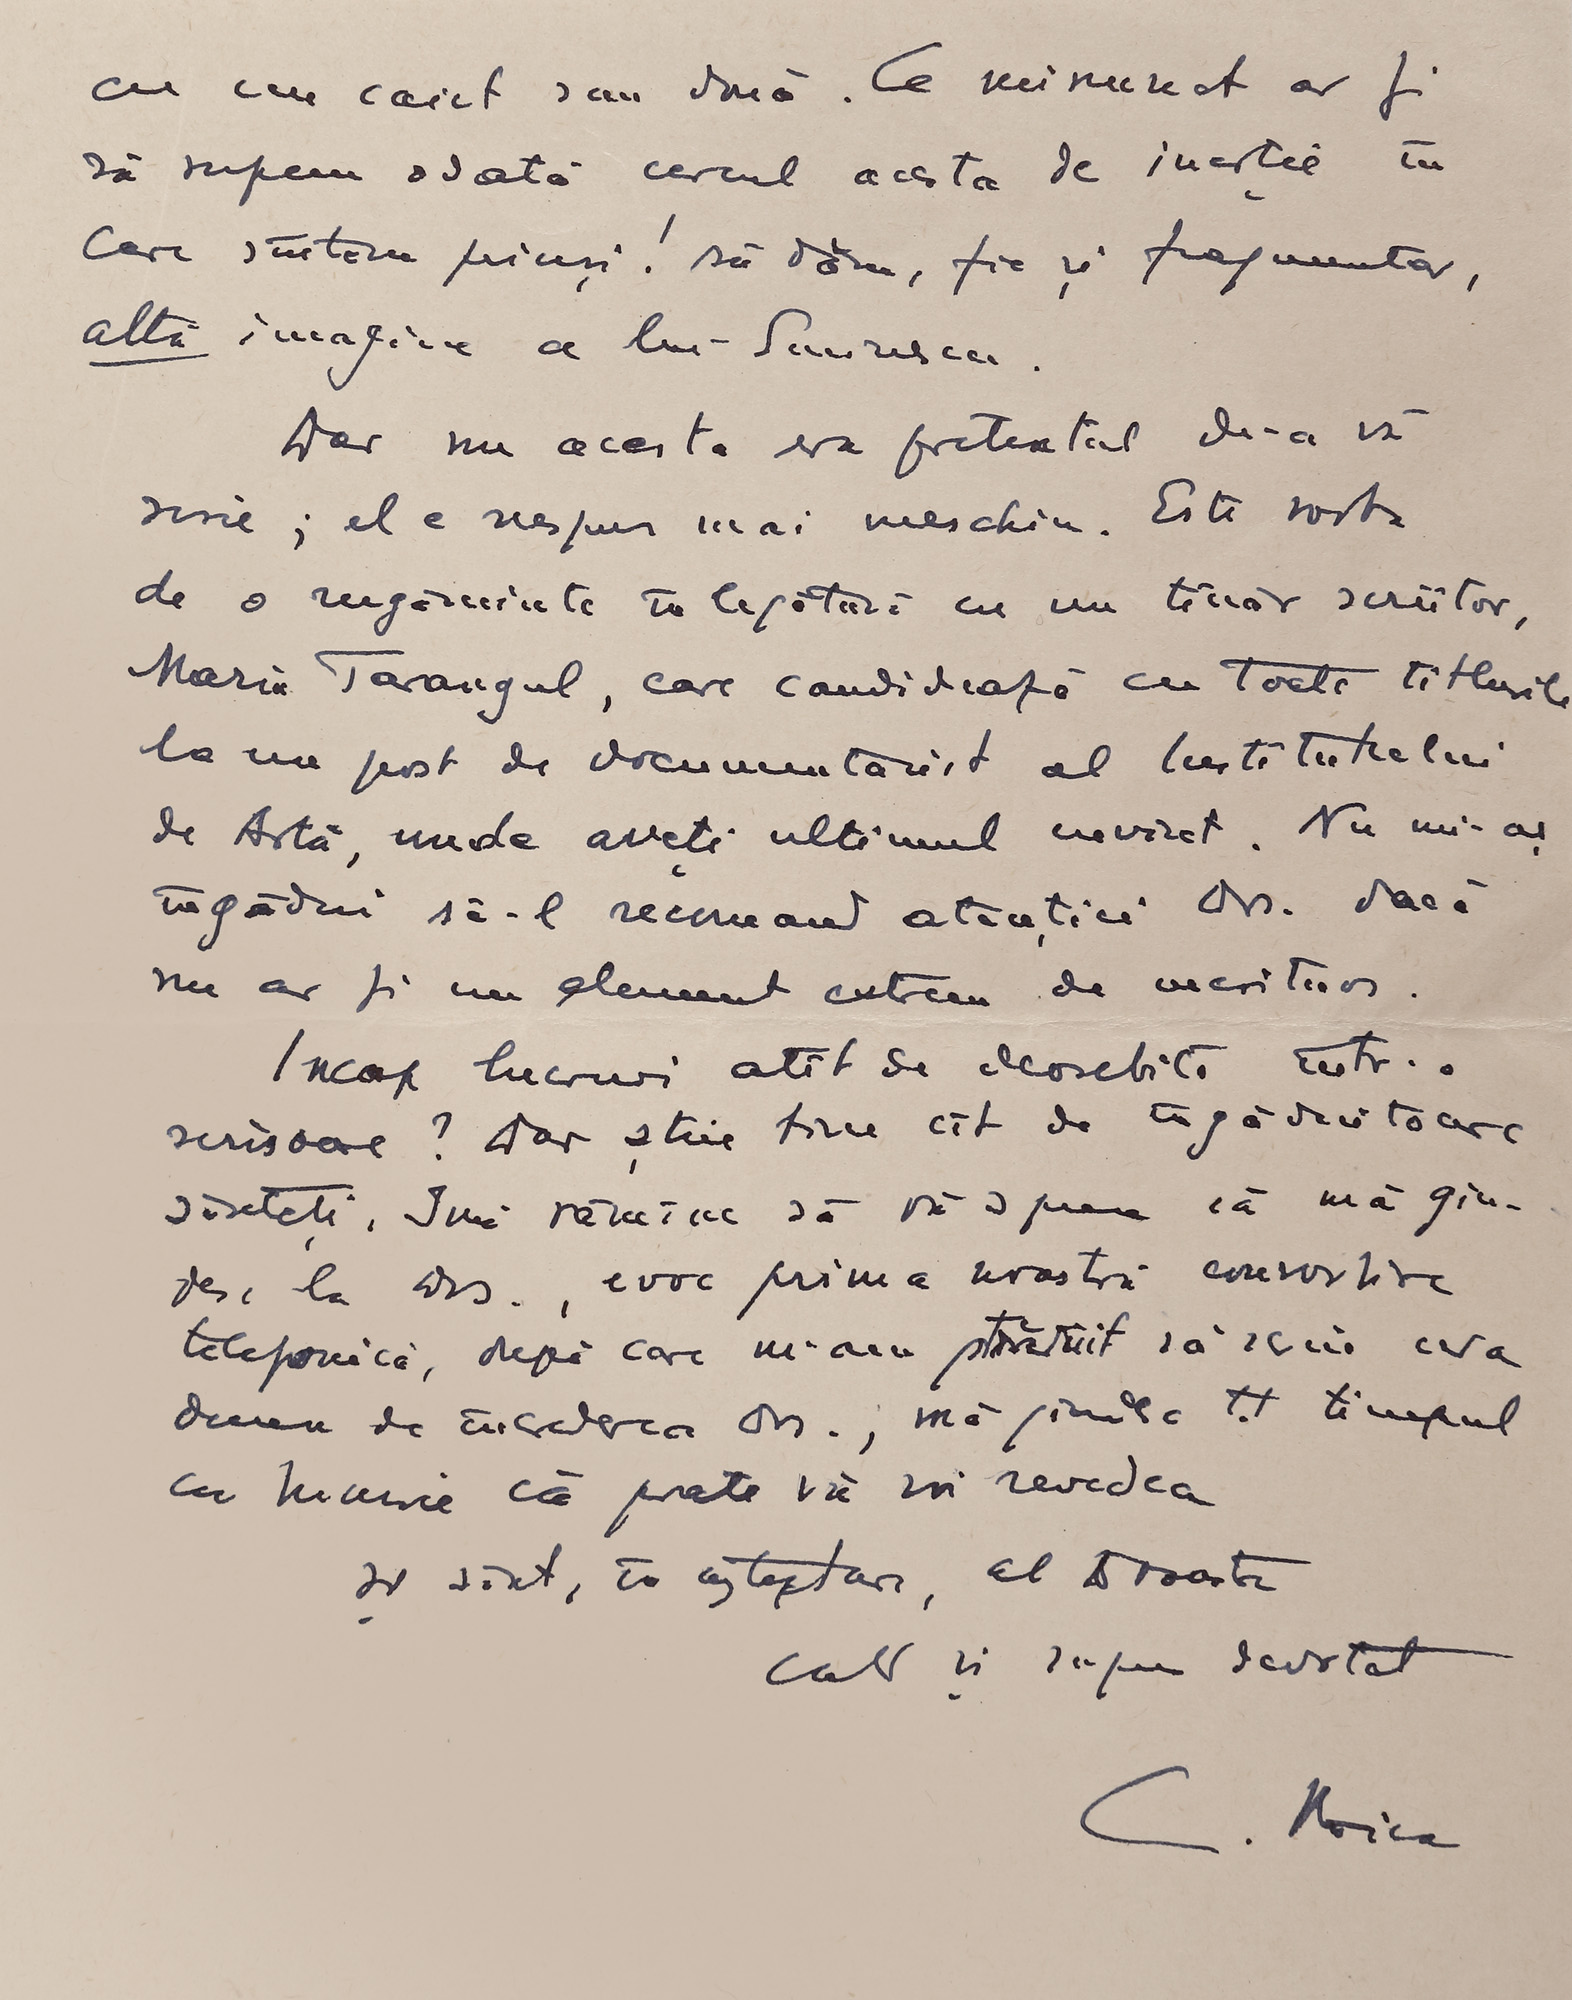 cu un caiet sau două. Ce minunat ar fi
să rupem odată cercul acesta de inerție în
care sîntem prinși! Să dăm, fie și fragmentar,
altă imagine a lui Eminescu.
Dar nu acesta era pretextul de-a vă
scrie; el e nespus mai meschin. Este vorba
de o rugăminte în legătură cu un tînăr scriitor,
Marin Tarangul, care candidează cu toate titlurile
la un post de documentarist al Institutului
de Artă, unde aveți ultimul cuvînt. Nu mi-aș
îngădui să-l recomand atenției Dvs. dacă
nu ar fi un element extrem de merituos.
Încap lucruri atît de deosebite într-o
scrisoare? Dar știu bine cît de îngăduitoare
sînteți. Îmi rămîne să vă spun că mă gîn-
desc la Dvs., evoc prima noastră convorbire
telefonică, după care m-am străduit să scriu ceva
demn de încrederea Dvs., mă gîndesc tot timpul
cu bucurie că poate vă voi revedea
și sînt, în așteptare, al Dvoastră
cald și supus devotat
C. Noica